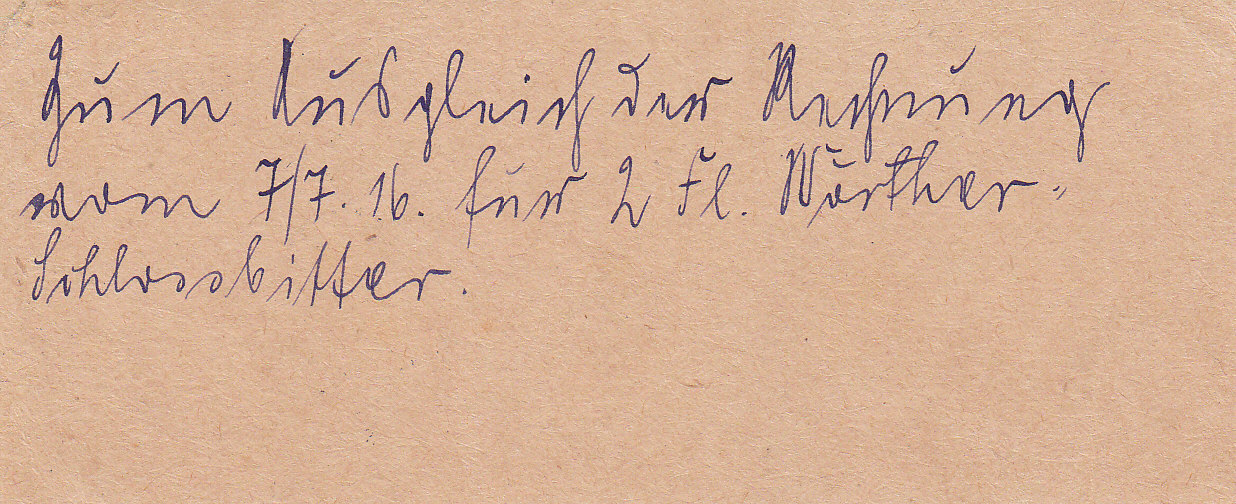 Zum Ausgleich der Rechnung
vom 7/7. 16. für 2 Fl. Wörther-
Schlossbitter.